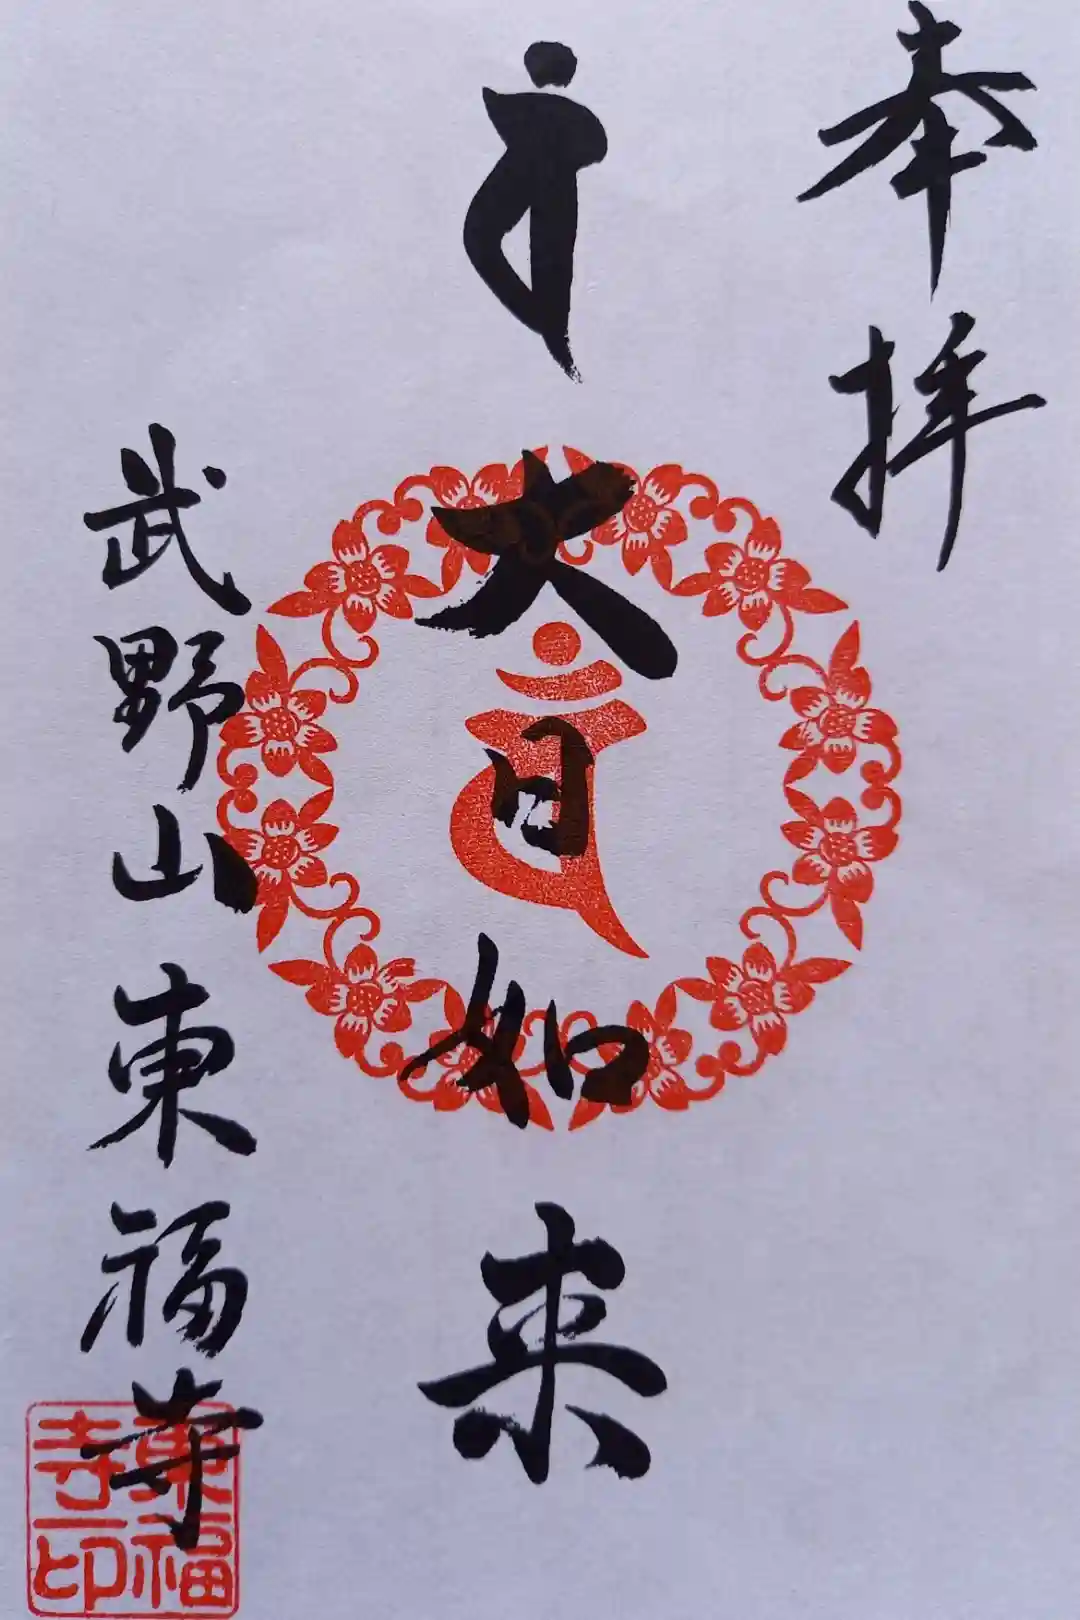 奉拝
वं
大日如来
武野山東福寺
東福寺印